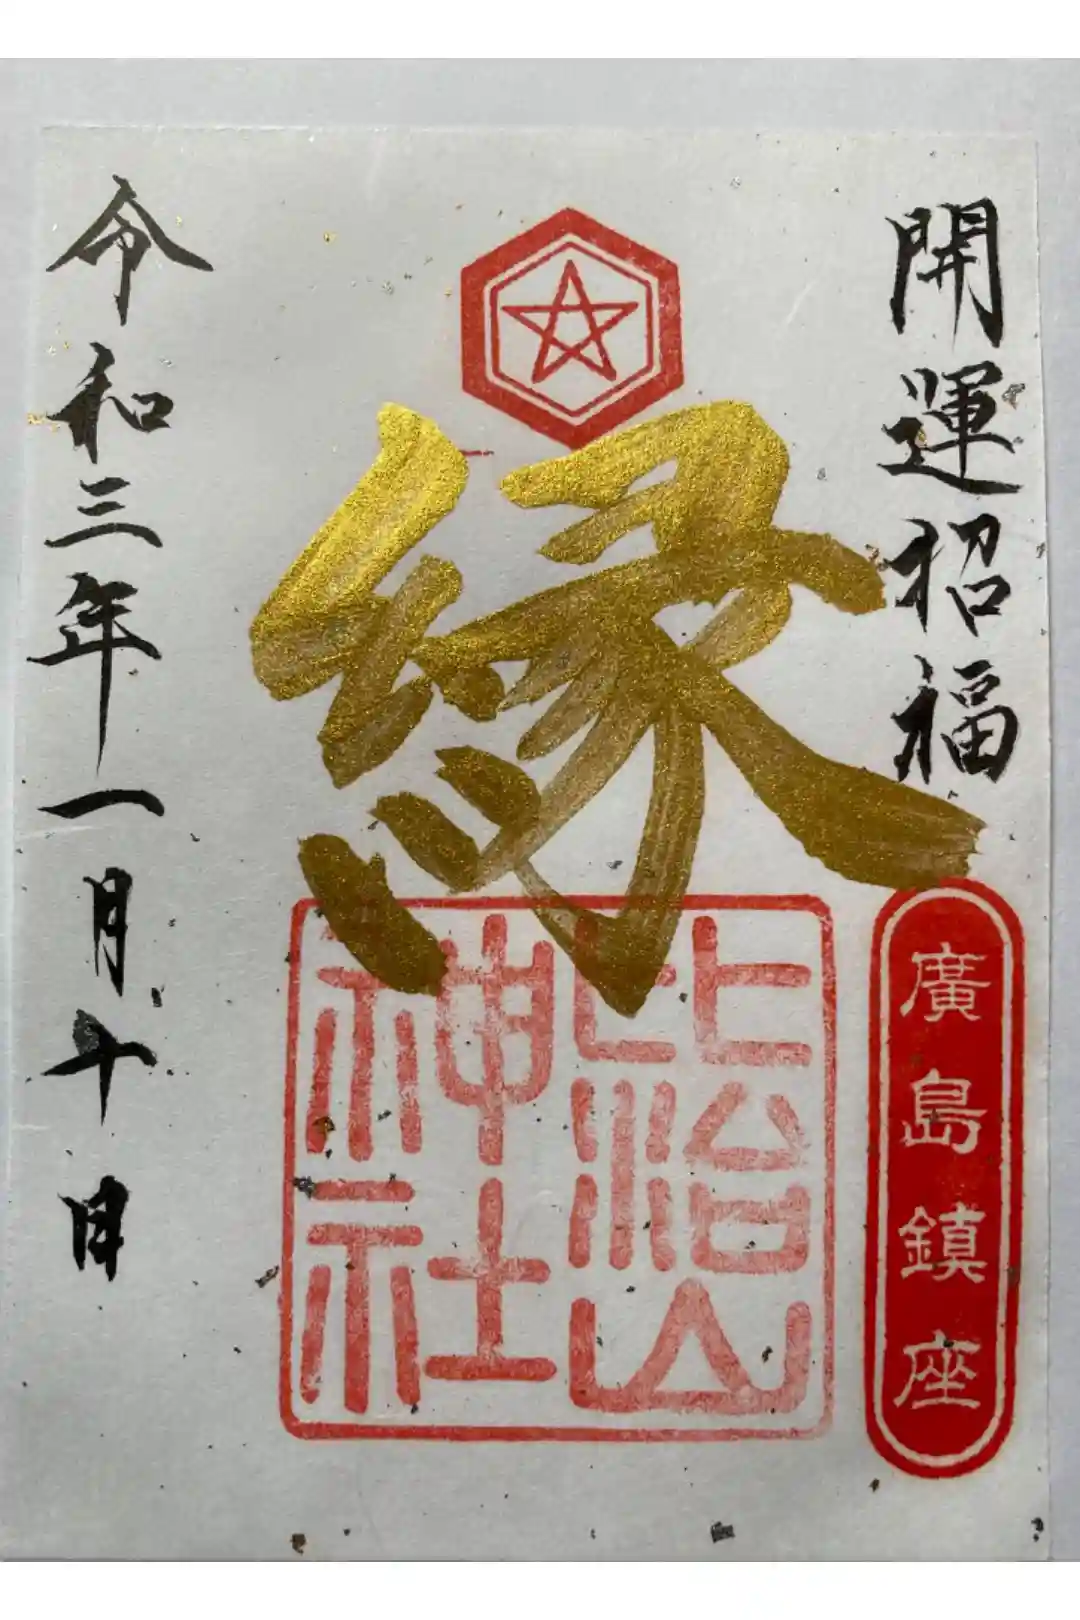 開運招福
廣島鎮座
縁
比治山
神社
令和三年一月十日